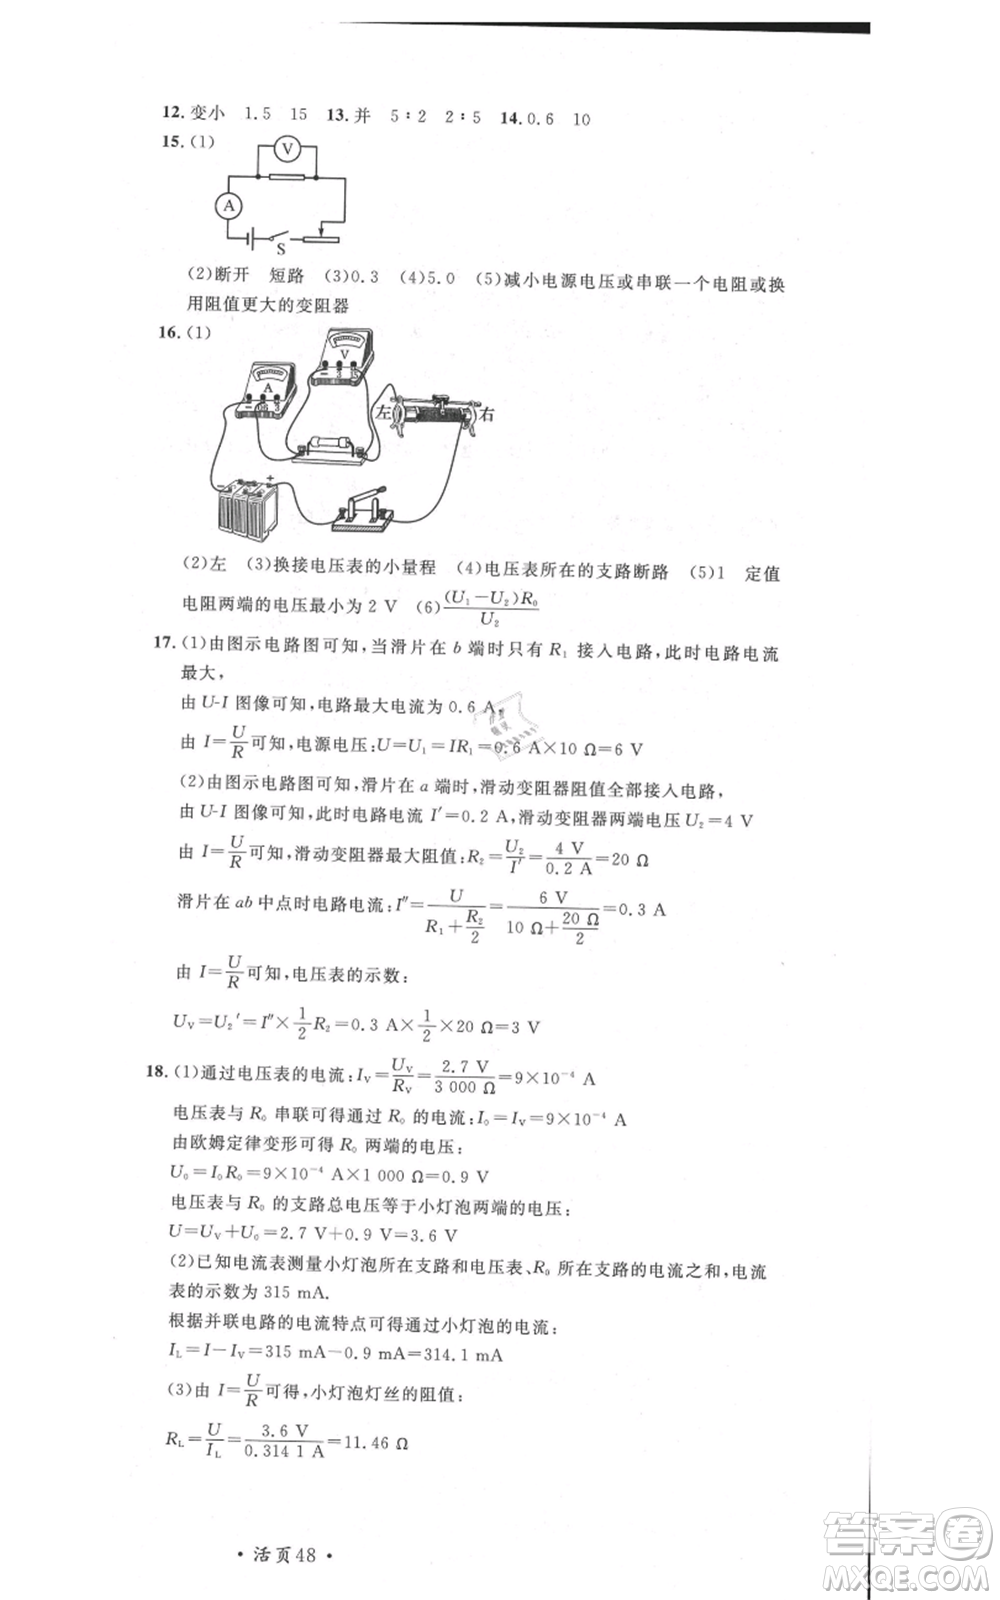 12.变小　1.5　15　13.并　5∶2　2∶5　14.0.6　10
15.(1)
V
A
S
(2)断开　短路　(3)0.3　(4)5.0　(5)减小电源电压或串联一个电阻或换
用阻值更大的变阻器
16.(1)
V
- 3 15
A
- 0.6 3
左 右
- +
(2)左　(3)换接电压表的小量程　(4)电压表所在的支路断路　(5)1　定值
电阻两端的电压最小为 2 V　(6)(U₁-U₂)R₀/U₂
17.(1)由图示电路图可知,当滑片在 b 端时只有 R₁ 接入电路,此时电路电流
最大,
由 U-I 图像可知,电路最大电流为 0.6 A,
由 I=U/R可知,电源电压:U=U₁=IR₁=0.6 A×10 Ω=6 V
(2)由图示电路图可知,滑片在 a 端时,滑动变阻器阻值全部接入电路,
由 U-I 图像可知,此时电路电流 I′=0.2 A,滑动变阻器两端电压 U₂=4 V
由 I=U/R可知,滑动变阻器最大阻值:R₂=U₂/I′=4 V/0.2 A=20 Ω
滑片在 ab 中点时电路电流:I″=U/(R₁+R₂/2)=6 V/(10 Ω+20 Ω/2)=0.3 A
由 I=U/R可知,电压表的示数:
U_V=U₂′=I″×1/2R₂=0.3 A×1/2×20 Ω=3 V
18.(1)通过电压表的电流:I_V=U_V/R_V=2.7 V/3 000 Ω=9×10⁻⁴ A
电压表与 R₀ 串联可得通过 R₀ 的电流:I₀=I_V=9×10⁻⁴ A
由欧姆定律变形可得 R₀ 两端的电压:
U₀=I₀R₀=9×10⁻⁴ A×1 000 Ω=0.9 V
电压表与 R₀ 的支路总电压等于小灯泡两端的电压:
U=U_V+U₀=2.7 V+0.9 V=3.6 V
(2)已知电流表测量小灯泡所在支路和电压表、R₀ 所在支路的电流之和,电流
表的示数为 315 mA.
根据并联电路的电流特点可得通过小灯泡的电流:
I_L=I-I_V=315 mA-0.9 mA=314.1 mA
(3)由 I=U/R可得,小灯泡灯丝的阻值:
R_L=U/I_L=3.6 V/0.314 1 A=11.46 Ω
· 活页48 ·
答案卷
MXQE.COM